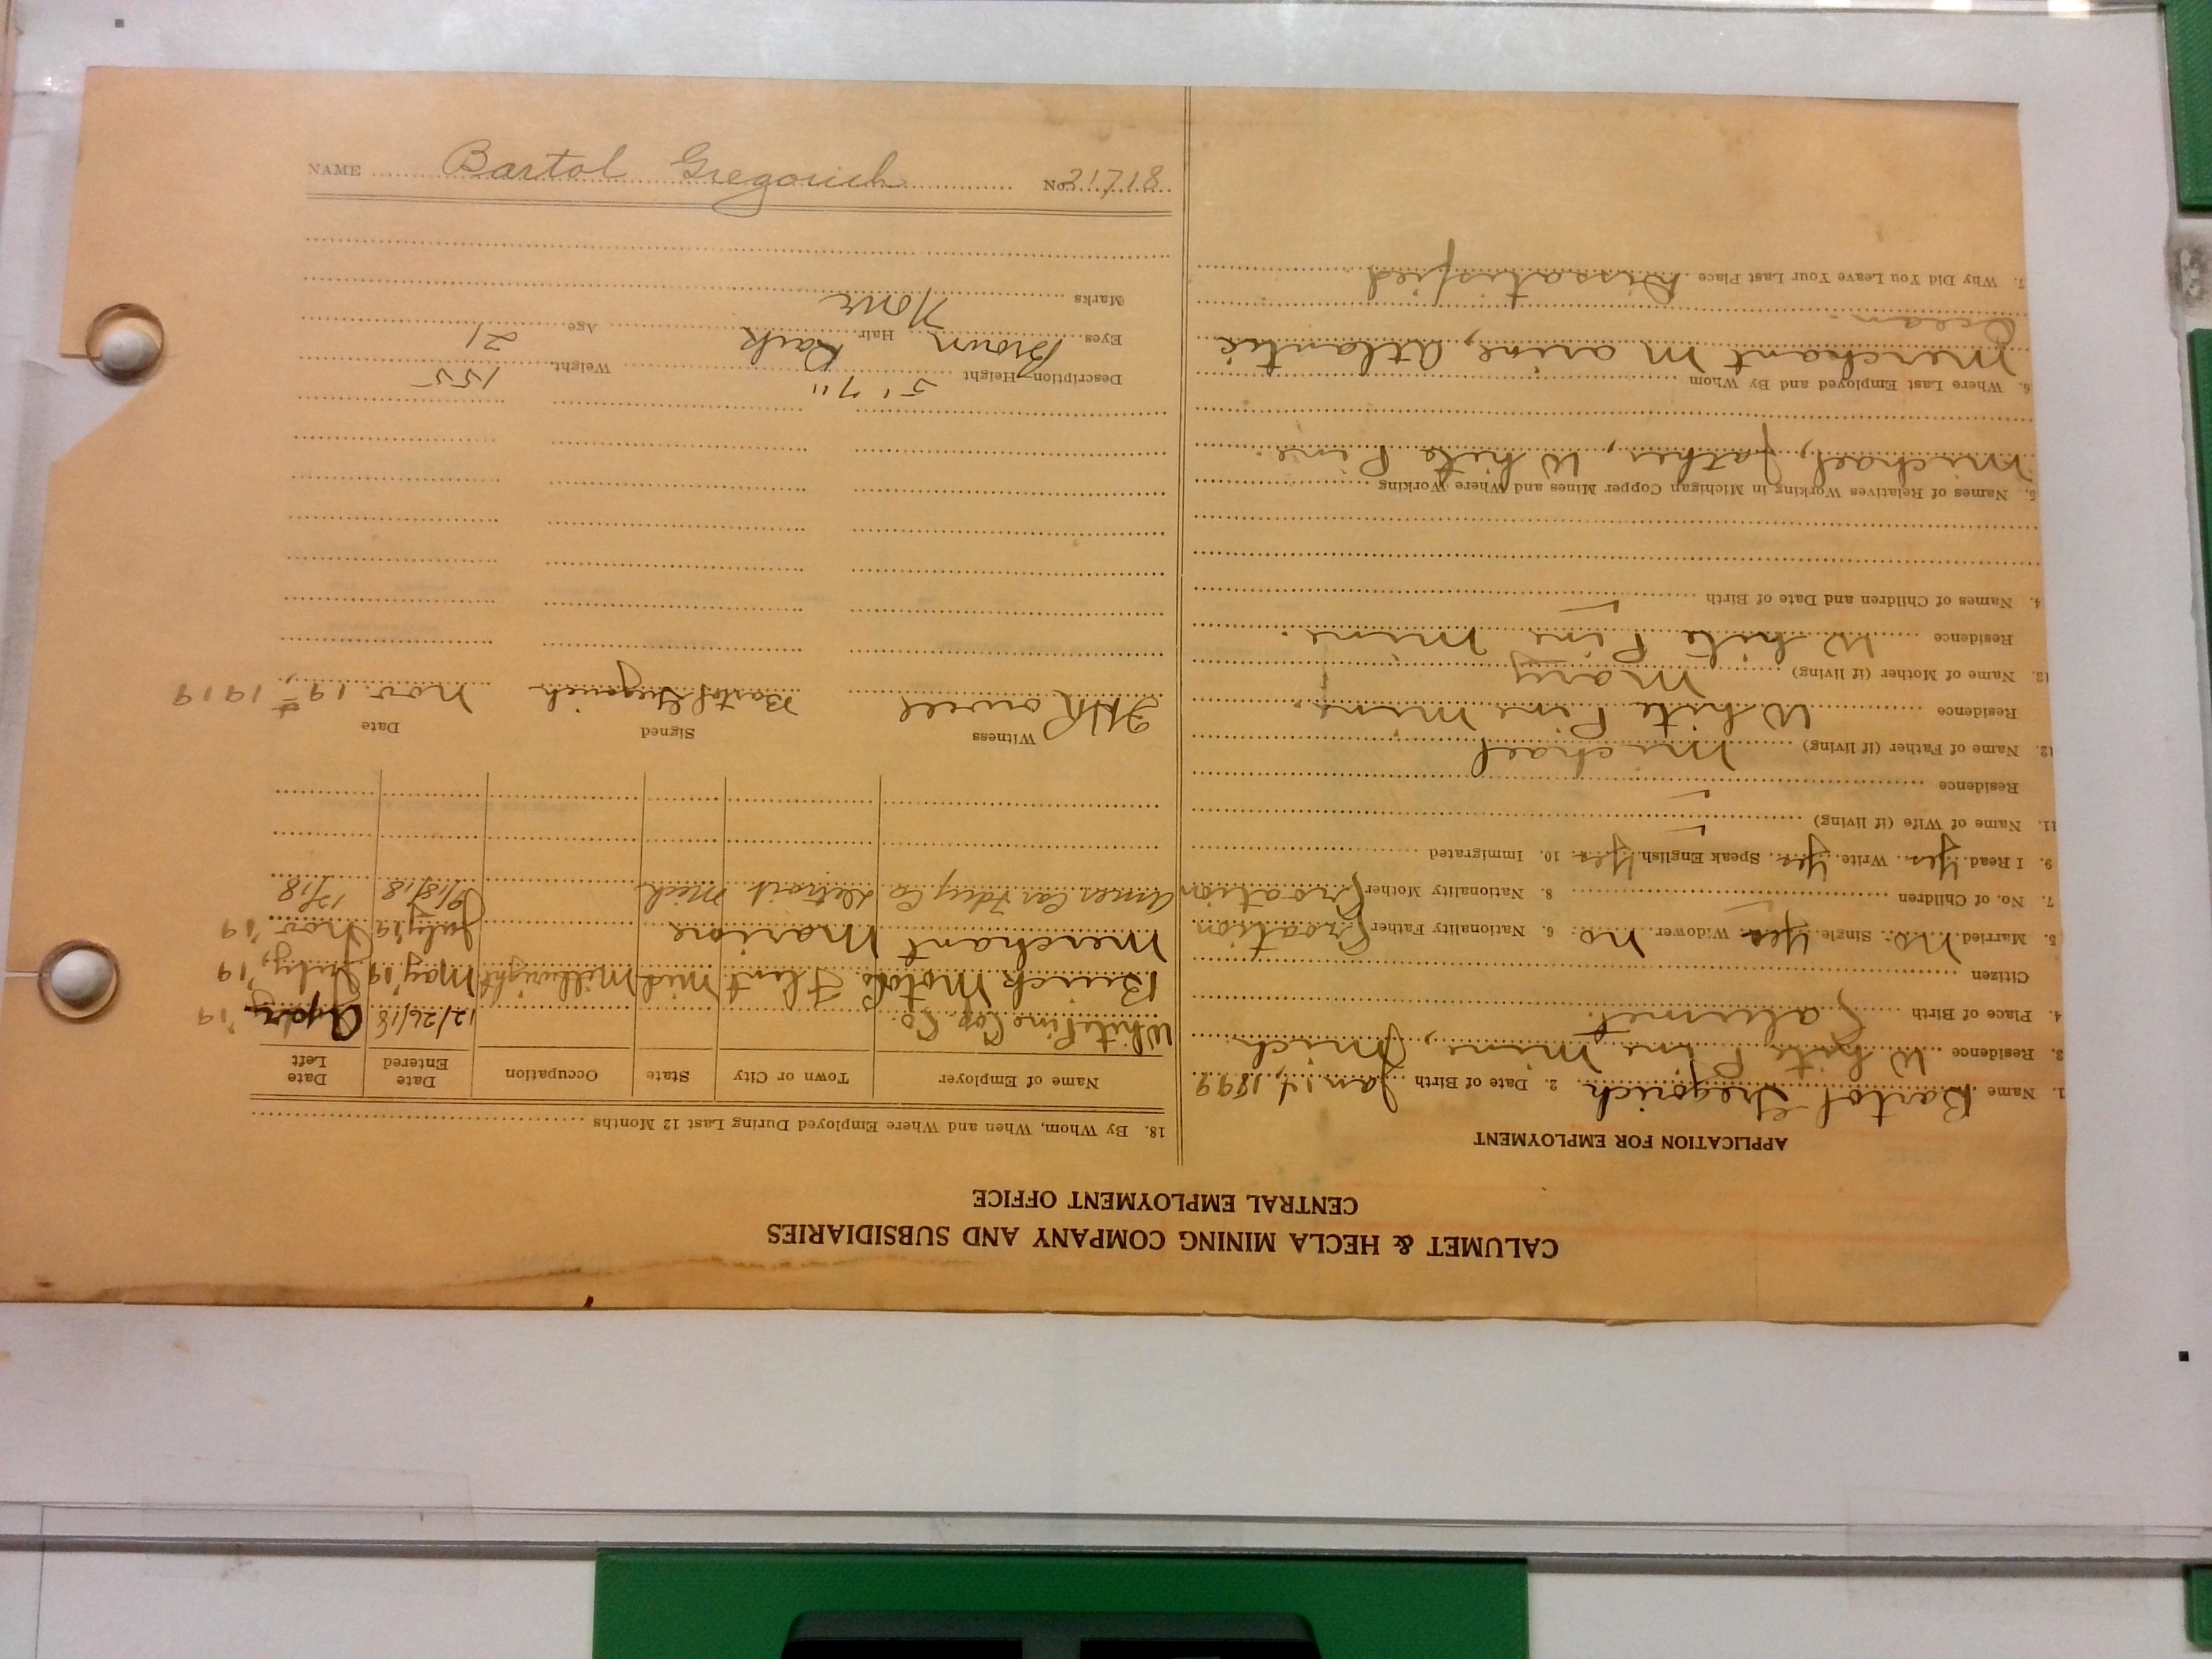 NAME Bartol Gregorich No. 21718
CALUMET & HECLA MINING COMPANY AND SUBSIDIARIES
CENTRAL EMPLOYMENT OFFICE
APPLICATION FOR EMPLOYMENT
1. Name Bartol Gregorich 2. Date of Birth Jan 14, 1899
3. Residence White Pine Mine, Mich.
4. Place of Birth Calumet.
Citizen
5. Married No. Single Yes Widower No. 6. Nationality Father Croation
7. No. of Children 8. Nationality Mother Croation
9. I Read Yes Write Yes Speak English Yes 10. Immigrated
11. Name of Wife (if living)
Residence
12. Name of Father (if living) Michael
Residence White Pine Mine.
13. Name of Mother (if living) Mary
Residence White Pine Mine.
4. Names of Children and Date of Birth
5. Names of Relatives Working in Michigan Copper Mines and Where Working
Michael, father, White Pine.
6. Where Last Employed and By Whom
Merchant Marine, Atlantic
Ocean.
7. Why Did You Leave Your Last Place Dissatisfied
18. By Whom, When and Where Employed During Last 12 Months
Name of Employer Town or City State Occupation Date Entered Date Left
White Pine Cop. Co. 12/26/18 '19
Buick Motor Co Flint Mich Millwright May '19 July, '19
Merchant Marine July '19 Nov '19
Amer Car Fdry Co Detroit Mich /18/18 /18
Witness Signed Date
Rowell Bartol Gregorich Nov. 19th, 1919
Description—Height 5' 7" Weight 155
Eyes Brown Hair Dark Age 21
Marks None